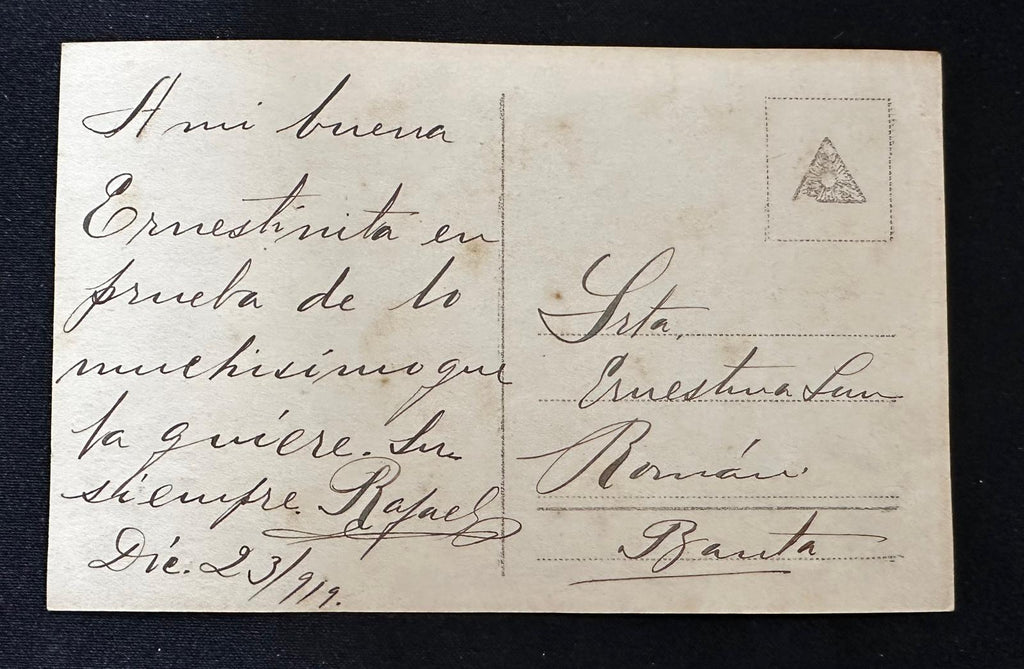 A mi buena
Ernestinita en
prueba de lo
muchisimo que
la quiere. Su
siempre. Rafael
Dic. 23/919.
Srta,
Ernestina San
Román
Banta